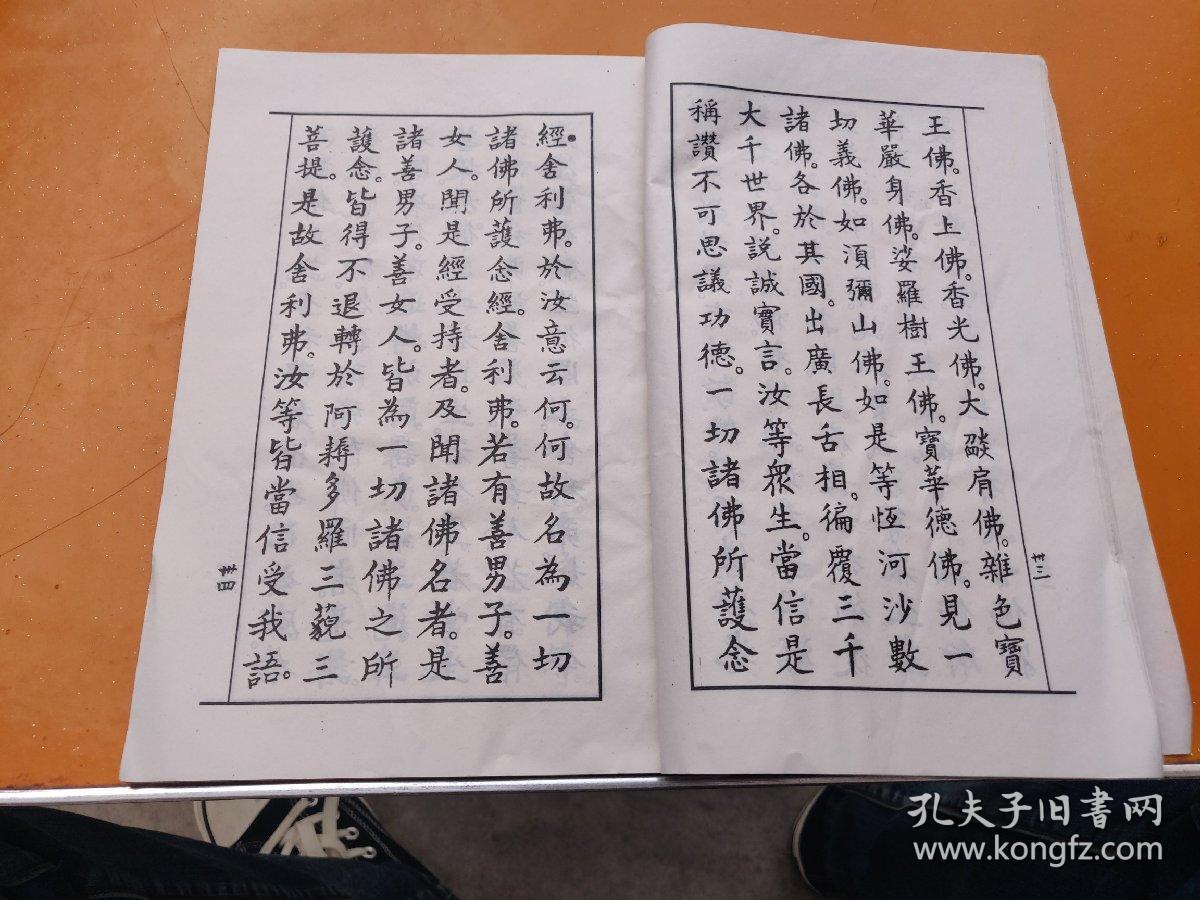 王佛。香上佛。香光佛。大燄肩佛。雜色寶
華嚴身佛。娑羅樹王佛。寶華德佛。見一
切義佛。如須彌山佛。如是等恆河沙數
諸佛。各於其國。出廣長舌相。徧覆三千
大千世界。說誠實言。汝等眾生。當信是
稱讚不可思議功德。一切諸佛所護念
卅三
經。舍利弗。於汝意云何。何故名為一切
諸佛所護念經。舍利弗。若有善男子。善
女人。聞是經受持者。及聞諸佛名者。是
諸善男子。善女人。皆為一切諸佛之所
護念。皆得不退轉於阿耨多羅三藐三
菩提。是故舍利弗。汝等皆當信受我語。
卅四
孔夫子旧书网
www.kongfz.com